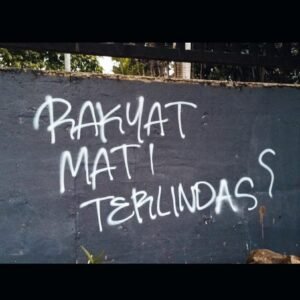 RAKYAT
MATI
TERLINDAS?